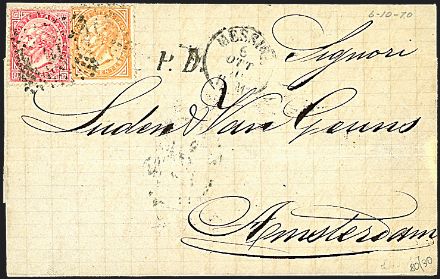 6-10-70
MESSINA
6
OTT
P. D.
Signori
Luden & Van Geuns
Amsterdam
80/30